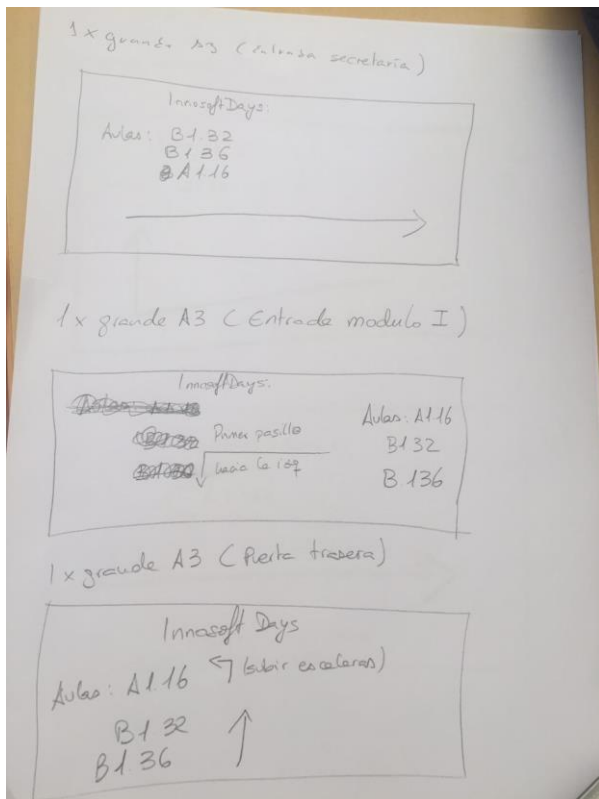 1 x grande A3 (entrada secretaria)
InnosoftDays:
Aulas: B1.32
B1 36
A1.16
1 x grande A3 (Entrada modulo I)
InnosoftDays:
Primer pasillo
hacia la izq
Aulas: A1.16
B1 32
B.136
1 x grande A3 (Puerta trasera)
Innosoft Days
Aulas: A1.16 (subir escaleras)
B1 32
B1.36